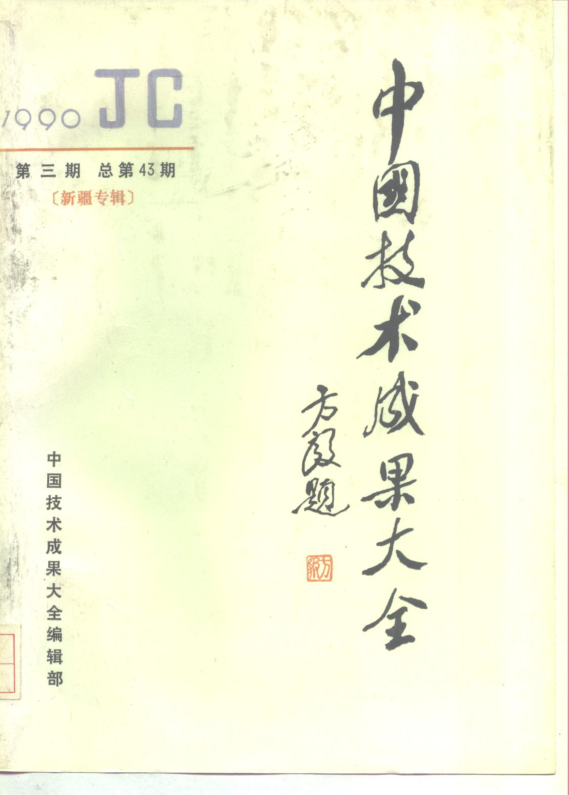 1990 JC
第三期 总第43期
〔新疆专辑〕
中國技术成果大全
方毅题
中国技术成果大全编辑部